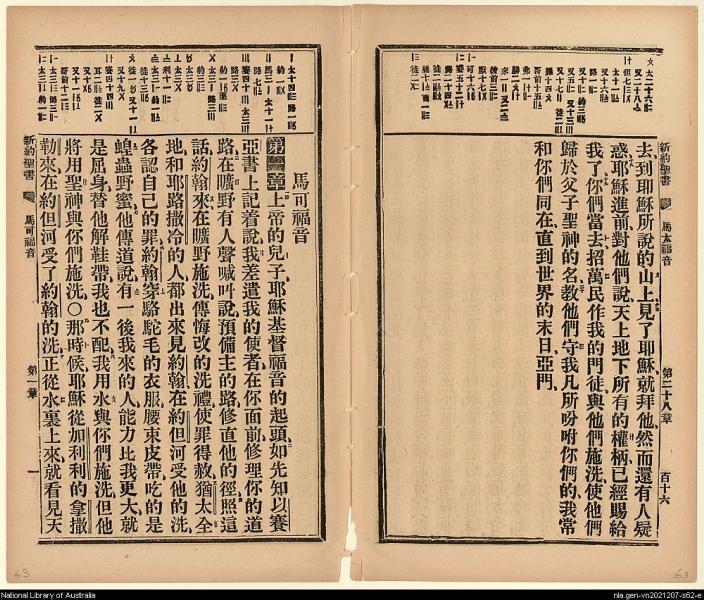 馬太福音
第二十八章
百十六
去、到耶穌所說的山上、見了耶穌、就拜他、然而還有人疑
惑、耶穌進前、對他們說、天上地下所有的權柄、已經賜給
我了、你們當去招萬民作我的門徒、與他們施洗、使他們
歸於父子聖神的名、教他們守我凡所吩咐你們的、我常
和你們同在、直到世界的末日、亞門、
馬可福音
第一章 上帝的兒子、耶穌基督福音的起頭、如先知以賽
亞書上記着說、我差遣我的使者、在你面前、修理你的道
路、在曠野有人聲喊叫說、預備主的路、修直他的徑、照這
話、約翰來在曠野施洗、傳悔改的洗禮、使罪得赦、猶太全
地、和耶路撒冷的人、都出來見約翰、在約但河受他的洗、
各認自己的罪、約翰穿駱駝毛的衣服、腰束皮帶、吃的是
蝗蟲野蜜、他傳道說、有一後我來的人、能力比我更大、就
是屈身替他解鞋帶、我也不配、我用水與你們施洗、但他
將用聖神與你們施洗○那時候耶穌從加利利的拿撒
勒來、在約但河受了約翰的洗、正從水裏上來、就看見天
新約聖書
馬可福音
第一章
一
63
63
National Library of Australia
nla.gen-vn2021207-s62-e